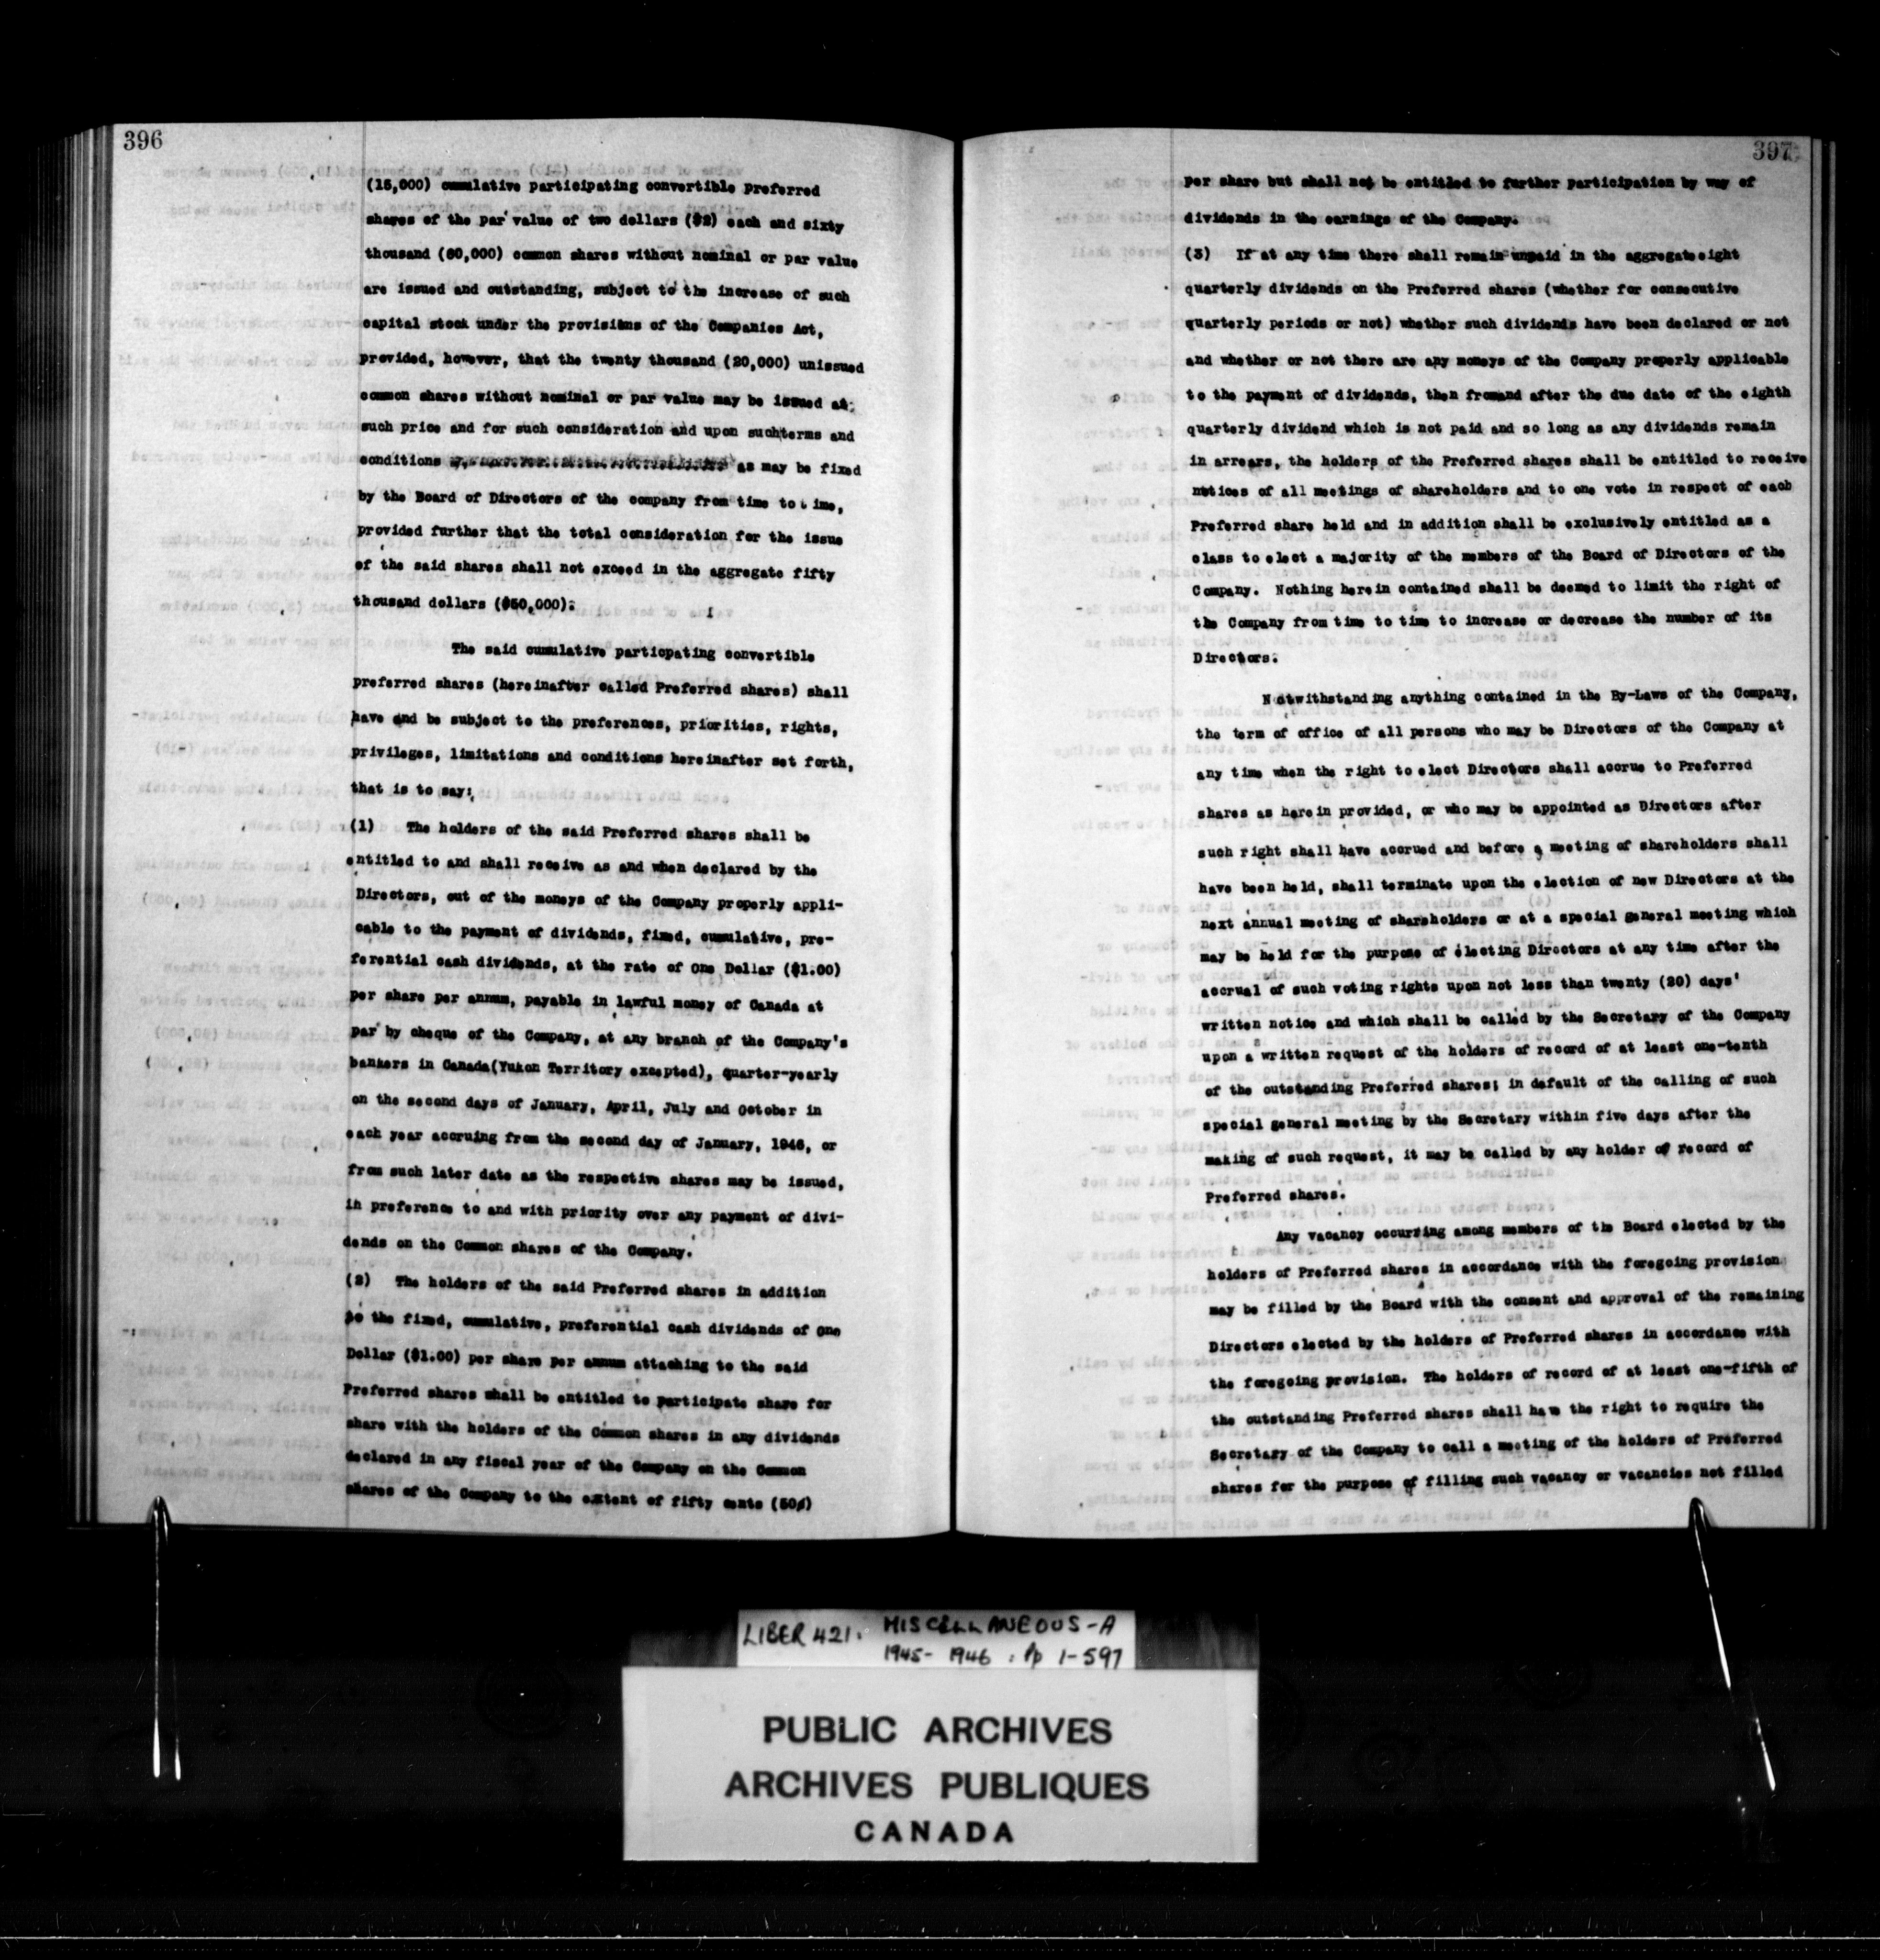 396
(15,000) cumulative participating convertible preferred
shares of the par value of two dollars ($2) each and sixty
thousand (60,000) common shares without nominal or par value
are issued and outstanding, subject to the increase of such
capital stock under the provisions of the Companies Act,
provided, however, that the twenty thousand (20,000) unissued
common shares without nominal or par value may be issued at
such price and for such consideration and upon suchterms and
conditions as may be fixed
by the Board of Directors of the company from time to time,
provided further that the total consideration for the issue
of the said shares shall not exceed in the aggregate fifty
thousand dollars ($50,000):
The said cumulative particpating convertible
preferred shares (hereinafter called Preferred shares) shall
have and be subject to the preferences, priorities, rights,
privileges, limitations and conditions hereinafter set forth,
that is to say:
(1) The holders of the said Preferred shares shall be
entitled to and shall receive as and when declared by the
Directors, out of the moneys of the Company properly appli-
cable to the payment of dividends, fixed, cumulative, pre-
ferential cash dividends, at the rate of One Dollar ($1.00)
per share per annum, payable in lawful money of Canada at
par by cheque of the Company, at any branch of the Company's
bankers in Canada(Yukon Territory excepted), quarter-yearly
on the second days of January, April, July and October in
each year accruing from the second day of January, 1946, or
from such later date as the respective shares may be issued,
in preference to and with priority over any payment of divi-
dends on the Common shares of the Company.
(2) The holders of the said Preferred shares in addition
to the fixed, cumulative, preferential cash dividends of One
Dollar ($1.00) per share per annum attaching to the said
Preferred shares shall be entitled to participate share for
share with the holders of the Common shares in any dividends
declared in any fiscal year of the Company on the Common
shares of the Company to the extent of fifty cents (50¢)
397
per share but shall not be entitled to further participation by way of
dividends in the earnings of the Company.
(3) If at any time there shall remain unpaid in the aggregate eight
quarterly dividends on the Preferred shares (whether for consecutive
quarterly periods or not) whether such dividends have been declared or not
and whether or not there are any moneys of the Company properly applicable
to the payment of dividends, then fromand after the due date of the eighth
quarterly dividend which is not paid and so long as any dividends remain
in arrears, the holders of the Preferred shares shall be entitled to receive
notices of all meetings of shareholders and to one vote in respect of each
Preferred share held and in addition shall be exclusively entitled as a
class to elect a majority of the members of the Board of Directors of the
Company. Nothing herein contained shall be deemed to limit the right of
the Company from time to time to increase or decrease the number of its
Directors.
Notwithstanding anything contained in the By-Laws of the Company,
the term of office of all persons who may be Directors of the Company at
any time when the right to elect Directors shall accrue to Preferred
shares as herein provided, or who may be appointed as Directors after
such right shall have accrued and before a meeting of shareholders shall
have been held, shall terminate upon the election of new Directors at the
next annual meeting of shareholders or at a special general meeting which
may be held for the purpose of electing Directors at any time after the
accrual of such voting rights upon not less than twenty (20) days'
written notice and which shall be called by the Secretary of the Company
upon a written request of the holders of record of at least one-tenth
of the outstanding Preferred shares; in default of the calling of such
special general meeting by the Secretary within five days after the
making of such request, it may be called by any holder of record of
Preferred shares.
Any vacancy occurring among members of the Board elected by the
holders of Preferred shares in accordance with the foregoing provision
may be filled by the Board with the consent and approval of the remaining
Directors elected by the holders of Preferred shares in accordance with
the foregoing provision. The holders of record of at least one-fifth of
the outstanding Preferred shares shall have the right to require the
Secretary of the Company to call a meeting of the holders of Preferred
shares for the purpose of filling such vacancy or vacancies not filled
LIBER 421. MISCELLANEOUS-A
1945-1946 : Pp 1-597
PUBLIC ARCHIVES
ARCHIVES PUBLIQUES
CANADA